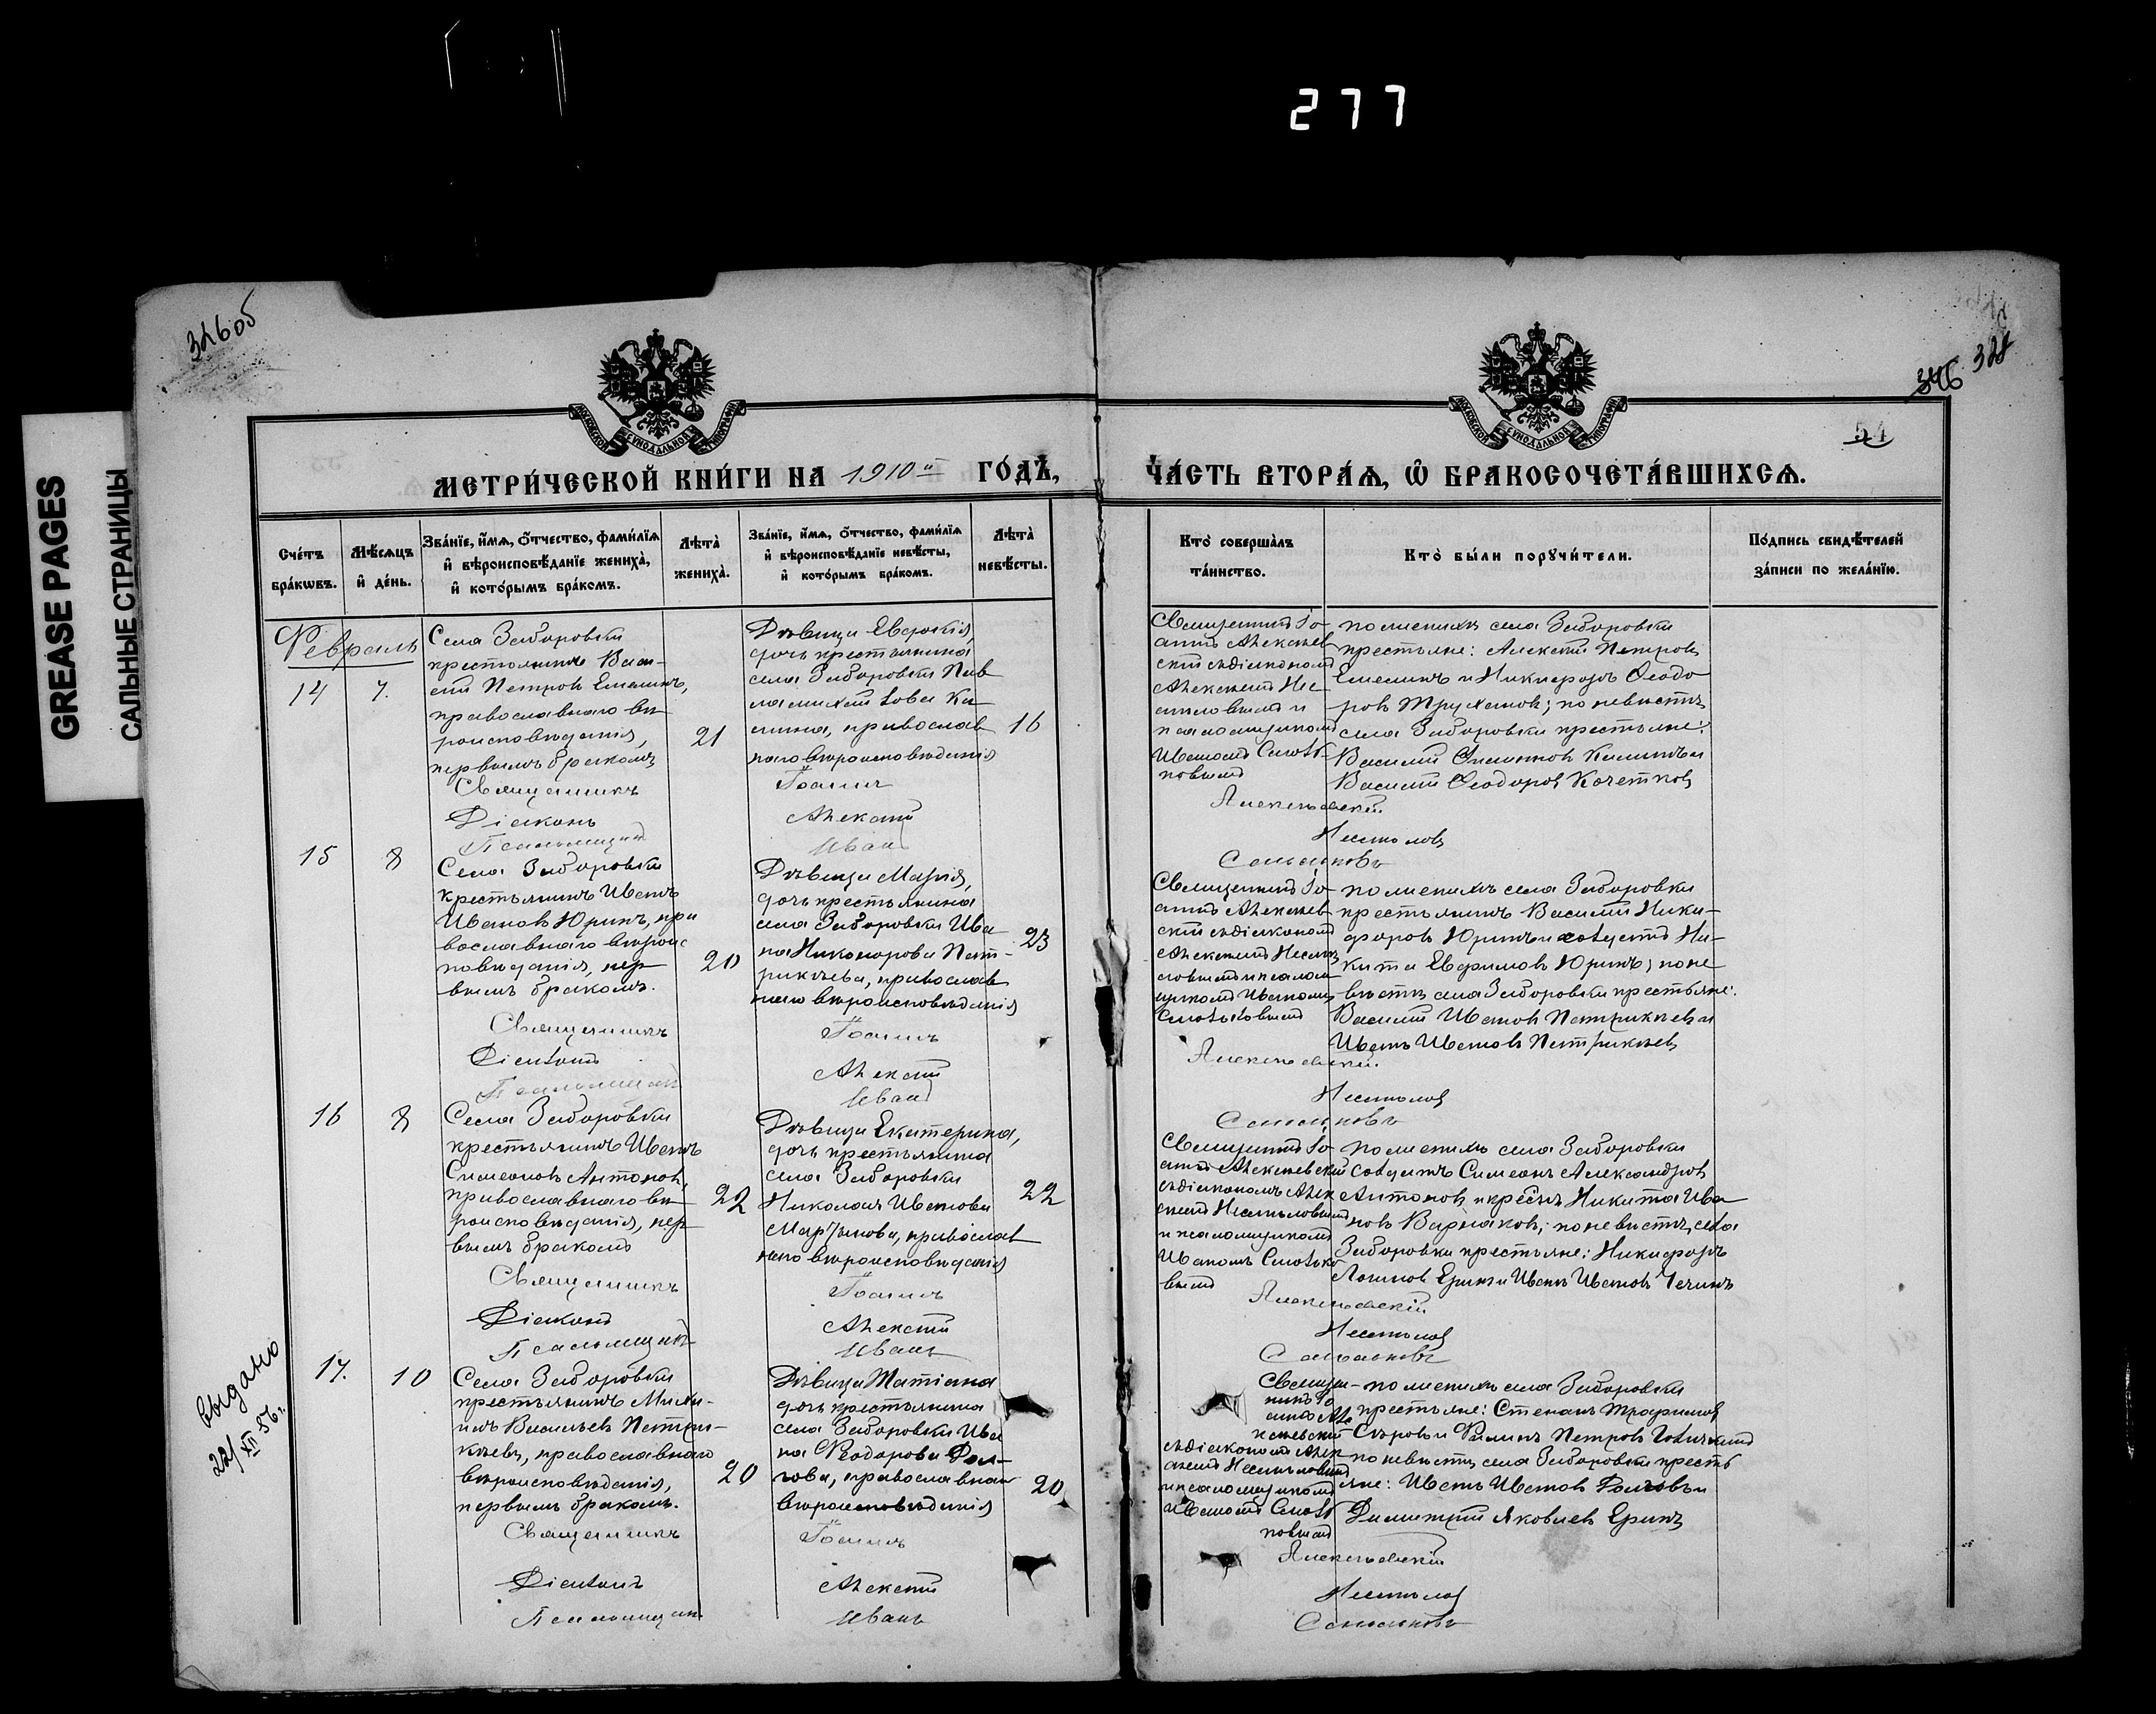 277
GREASE PAGES
САЛЬНЫЕ СТРАНИЦЫ
326об
346 328
54
МОСКОВСКОЙ СѴНОДАЛЬНОЙ ТИПОГРАФІИ
МОСКОВСКОЙ СѴНОДАЛЬНОЙ ТИПОГРАФІИ
МЕТРИ́ЧЕСКОЙ КНИ́ГИ НА 1910й ГО́ДЪ,
ЧА́СТЬ ВТОРА́Ѧ, Ѡ БРАКОСОЧЕТА́ВШИХСѦ.
Сче́тъ бра́кѡвъ.
Мѣ́сѧцъ и де́нь.
Зва́нїе, и́мѧ, о́тчество, фами́лїѧ и вѣроисповѣ́данїе жениха̀, и кото́рымъ бра́комъ.
Лѣта̀ жениха̀.
Зва́нїе, и́мѧ, о́тчество, фами́лїѧ и вѣроисповѣ́данїе невѣ́сты, и кото́рымъ бра́комъ.
Лѣта̀ невѣ́сты.
Кто̀ соверша́лъ та́инство.
Кто̀ бы́ли порꙋчи́тели.
По́дпись свидѣ́телей за́писи по жела́нїю.
Февраль
14
7.
Села Заборовки
крестьянинъ Васи-
лій Петровъ Емелинъ,
православнаго вѣ-
роисповѣданія,
первымъ бракомъ
21
Дѣвица Евдокія,
дочь крестьянина
села Заборовки Пав
ла
православ
наго вѣроисповѣданія
16
Священникъ Іо-
аннъ Алексѣев
скій съ діакономъ
Алексѣемъ Нес
мѣловымъ и
псаломщикомъ
Иваномъ
ковымъ
по женихѣ села Заборовки
крестьяне: Алексѣй Петровъ
Емелинъ и Никифоръ Ѳеодо
ровъ Трухановъ; по невѣстѣ
села Заборовки крестьяне:
Василій
Василій Ѳеодоровъ Кочетковъ
Священникъ Іоаннъ Алексѣевскій
Діаконъ Алексѣй Несмѣловъ
Псаломщикъ Иванъ
15
8
Села Заборовки
крестьянинъ Иванъ
Ивановъ Юринъ, пра
вославнаго вѣроис
повѣданія, пер-
вымъ бракомъ.
20
Дѣвица Марія,
дочь крестьянина
села Заборовки Ива
на Никонорова Пат-
рикѣева, православ
наго вѣроисповѣданія
23
Священникъ Іо-
аннъ Алексѣев
скій съ діакономъ
Алексѣемъ Несмѣ
ловымъ и псалом
щикомъ Иваномъ
по женихѣ села Заборовки
крестьянинъ Василій Ники-
форовъ Юринъ и солдатъ Ни-
кита Евфимовъ Юринъ; по не
вѣстѣ села Заборовки крестьяне:
Василій Ивановъ Патрикѣевъ и
Иванъ Ивановъ Патрикѣевъ
Священникъ Іоаннъ Алексѣевскій
Діаконъ Алексѣй Несмѣловъ
Псаломщикъ Иванъ
16
8
Села Заборовки
крестьянинъ Иванъ
Симеоновъ Антоновъ,
православнаго вѣ-
роисповѣданія, пер-
вымъ бракомъ
22
Дѣвица Екатерина,
дочь крестьянина
села Заборовки
Николая Иванова
Мартынова, православ
наго вѣроисповѣданія
22
Священникъ Іо-
аннъ Алексѣевскій
съ діакономъ Алек
сѣемъ Несмѣловымъ
и псаломщикомъ
Иваномъ
вымъ
по женихѣ села Заборовки
солдатъ Симеонъ Александровъ
Антоновъ и крест-нъ Никита Ива
новъ Варлаковъ; по невѣстѣ села
Заборовки крестьяне: Никифоръ
Логиновъ Еринъ и Иванъ Ивановъ
Священникъ Іоаннъ Алексѣевскій
Діаконъ Алексѣй Несмѣловъ
Псаломщикъ Иванъ
выдано
22/XII-56г.
17.
10
Села Заборовки
крестьянинъ Миха-
илъ Васильевъ Патри-
кѣевъ, православнаго
вѣроисповѣданія,
первымъ бракомъ.
20
Дѣвица Татіана
дочь крестьянина
села Заборовки Ива
на Ѳеодорова Дол-
гова, православнаго
вѣроисповѣданія
20
Священ-
никъ Іо
аннъ Але
ксѣевскій
съ діакономъ Алек
сѣемъ Несмѣловымъ
и псаломщикомъ
Иваномъ
ковымъ
по женихѣ села Заборовки
крестьяне: Степанъ Трофимовъ
Сѣровъ и Филипъ Петровъ
по невѣстѣ села Заборовки кресть
яне: Иванъ Ивановъ Долговъ и
Димитрій Яковлевъ Еринъ
Священникъ Іоаннъ Алексѣевскій
Діаконъ Алексѣй Несмѣловъ
Псаломщикъ Иванъ